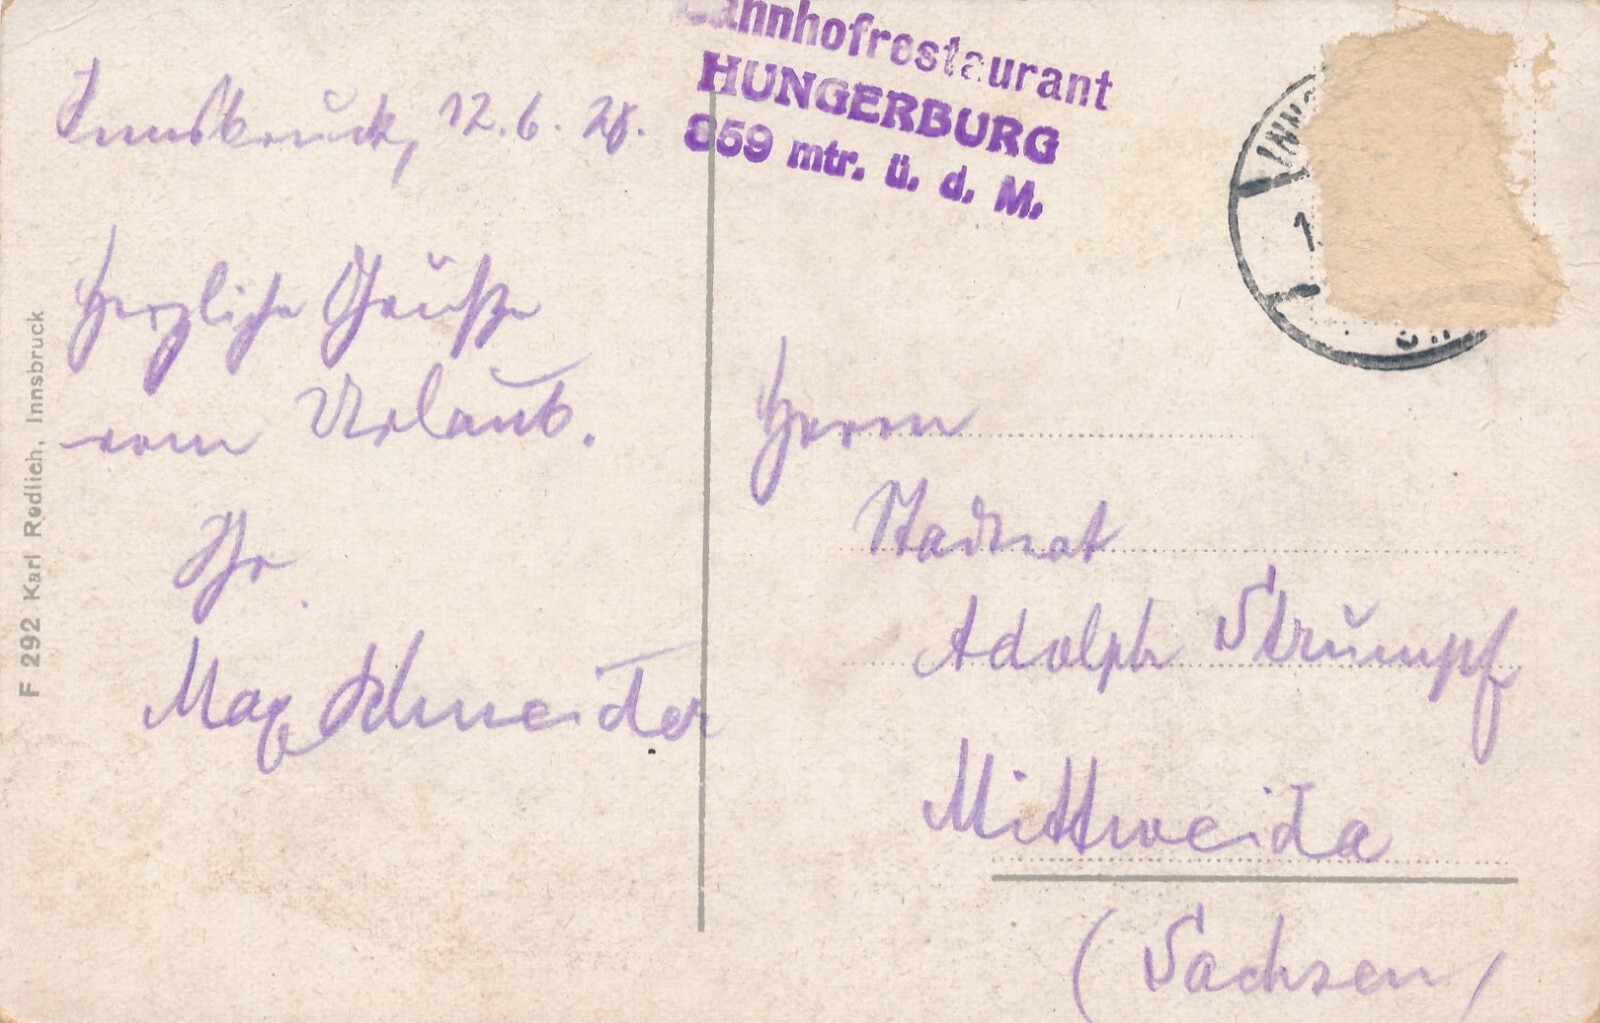 Innsbruck, 12.6.28.
Herzliche Grüße
vom Urlaub.
Ihr
Max Schneider
Bahnhofrestaurant
HUNGERBURG
859 mtr. ü. d. M.
Herrn
Stadtrat
Adolph Strumpf
Mittweida
(Sachsen)
F 292 Karl Redlich, Innsbruck